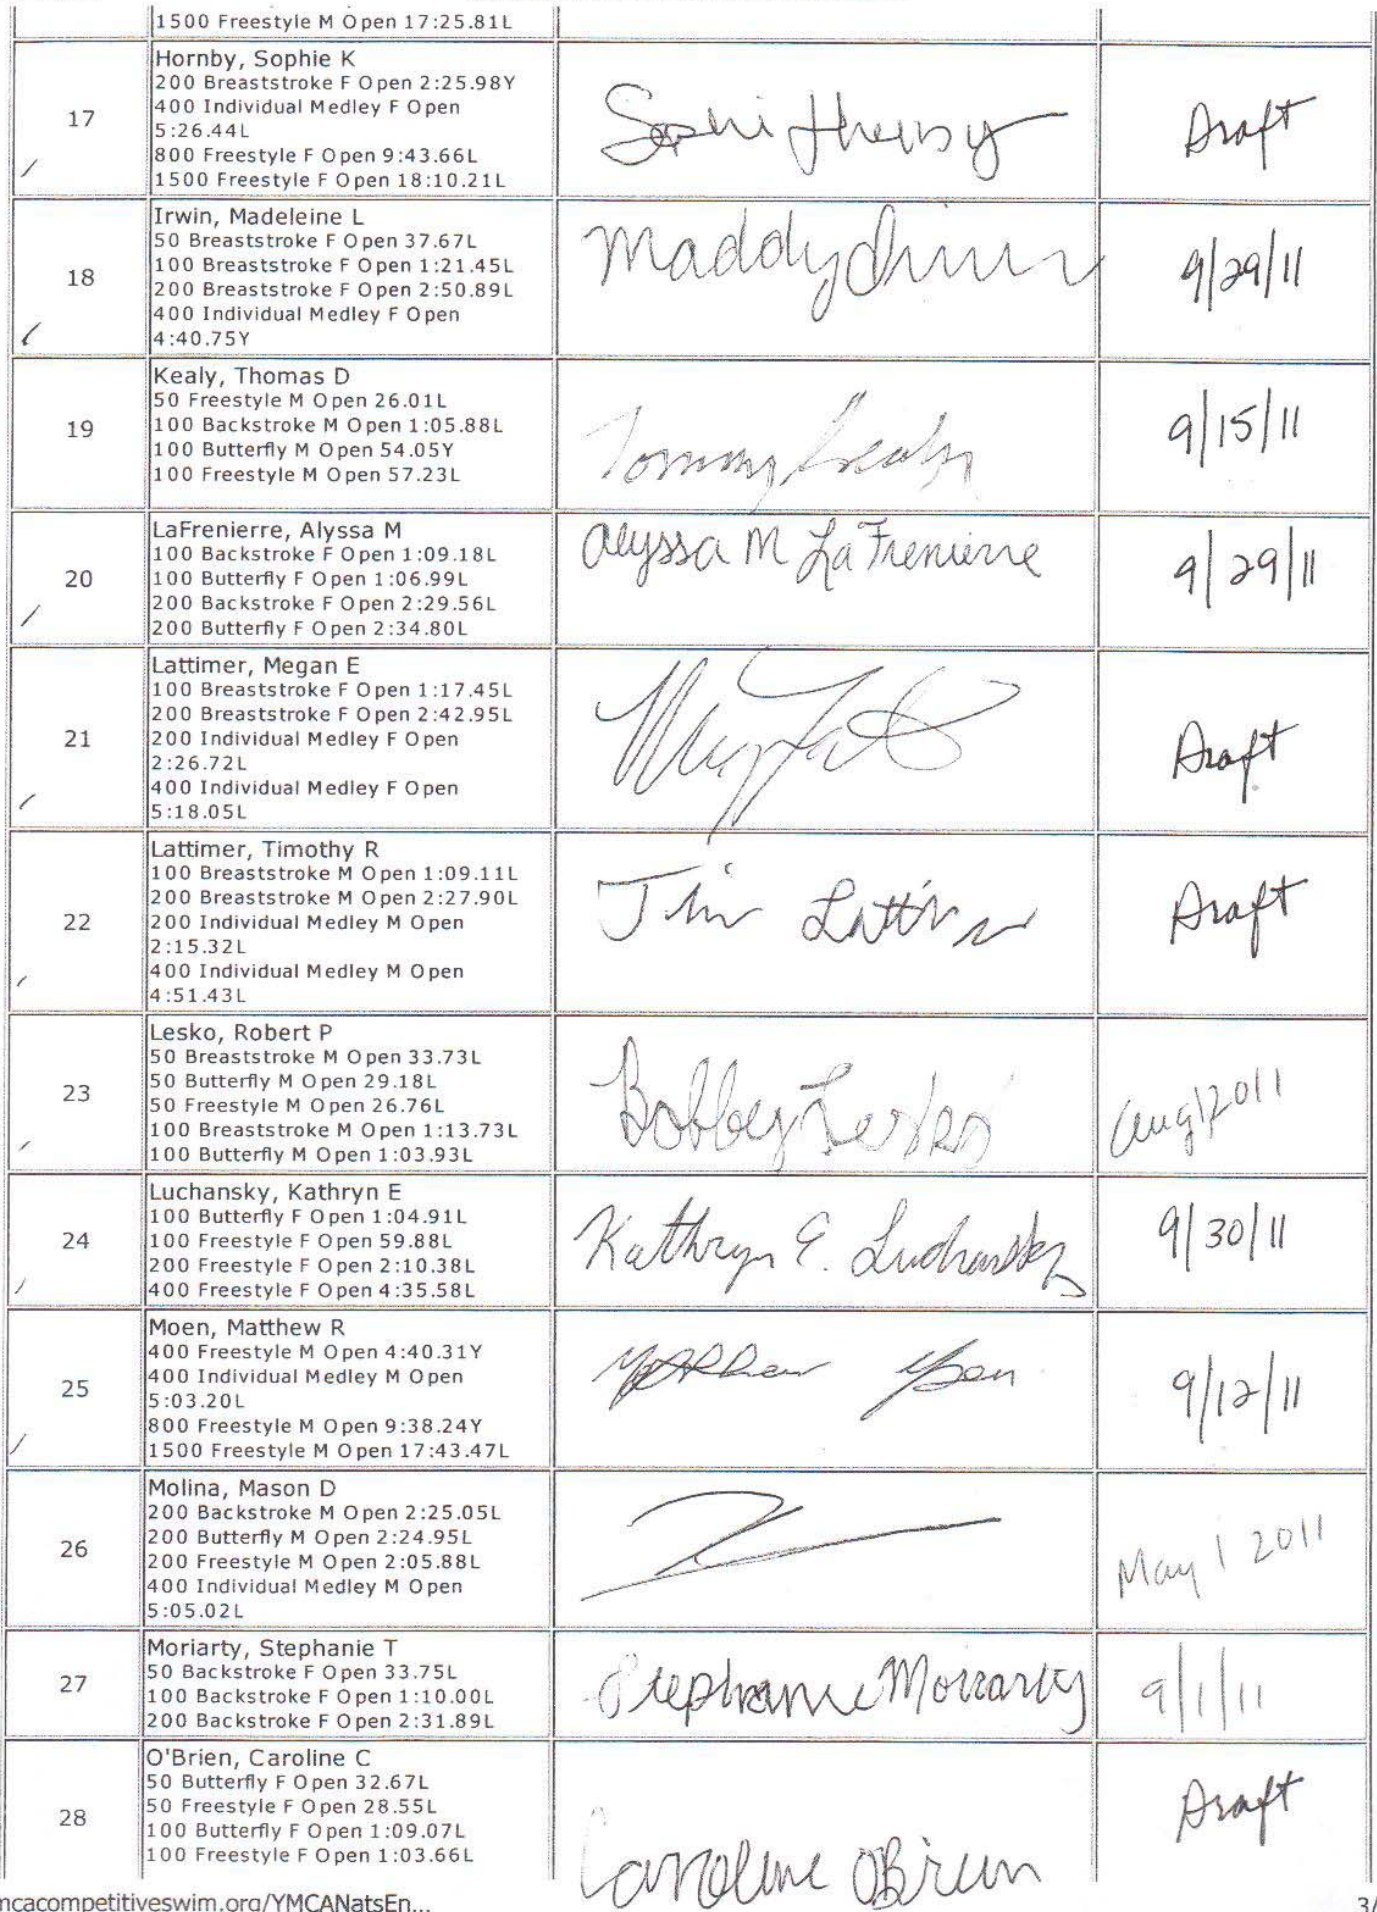 1500 Freestyle M Open 17:25.81L
17
Hornby, Sophie K
200 Breaststroke F Open 2:25.98Y
400 Individual Medley F Open
5:26.44L
800 Freestyle F Open 9:43.66L
1500 Freestyle F Open 18:10.21L
Draft
18
Irwin, Madeleine L
50 Breaststroke F Open 37.67L
100 Breaststroke F Open 1:21.45L
200 Breaststroke F Open 2:50.89L
400 Individual Medley F Open
4:40.75Y
Maddy Irwin
9/29/11
19
Kealy, Thomas D
50 Freestyle M Open 26.01L
100 Backstroke M Open 1:05.88L
100 Butterfly M Open 54.05Y
100 Freestyle M Open 57.23L
Tommy Kealy
9/15/11
20
LaFrenierre, Alyssa M
100 Backstroke F Open 1:09.18L
100 Butterfly F Open 1:06.99L
200 Backstroke F Open 2:29.56L
200 Butterfly F Open 2:34.80L
Alyssa M LaFrenierre
9/29/11
21
Lattimer, Megan E
100 Breaststroke F Open 1:17.45L
200 Breaststroke F Open 2:42.95L
200 Individual Medley F Open
2:26.72L
400 Individual Medley F Open
5:18.05L
Draft
22
Lattimer, Timothy R
100 Breaststroke M Open 1:09.11L
200 Breaststroke M Open 2:27.90L
200 Individual Medley M Open
2:15.32L
400 Individual Medley M Open
4:51.43L
Tim
Draft
23
Lesko, Robert P
50 Breaststroke M Open 33.73L
50 Butterfly M Open 29.18L
50 Freestyle M Open 26.76L
100 Breaststroke M Open 1:13.73L
100 Butterfly M Open 1:03.93L
Bobby Lesko
Aug 1, 2011
24
Luchansky, Kathryn E
100 Butterfly F Open 1:04.91L
100 Freestyle F Open 59.88L
200 Freestyle F Open 2:10.38L
400 Freestyle F Open 4:35.58L
Kathryn E. Luchansky
9/30/11
25
Moen, Matthew R
400 Freestyle M Open 4:40.31Y
400 Individual Medley M Open
5:03.20L
800 Freestyle M Open 9:38.24Y
1500 Freestyle M Open 17:43.47L
Matthew Moen
9/12/11
26
Molina, Mason D
200 Backstroke M Open 2:25.05L
200 Butterfly M Open 2:24.95L
200 Freestyle M Open 2:05.88L
400 Individual Medley M Open
5:05.02L
May 1 2011
27
Moriarty, Stephanie T
50 Backstroke F Open 33.75L
100 Backstroke F Open 1:10.00L
200 Backstroke F Open 2:31.89L
Stephanie Moriarty
9/1/11
28
O'Brien, Caroline C
50 Butterfly F Open 32.67L
50 Freestyle F Open 28.55L
100 Butterfly F Open 1:09.07L
100 Freestyle F Open 1:03.66L
Caroline OBrien
Draft
mcacompetitiveswim.org/YMCANatsEn...
3/